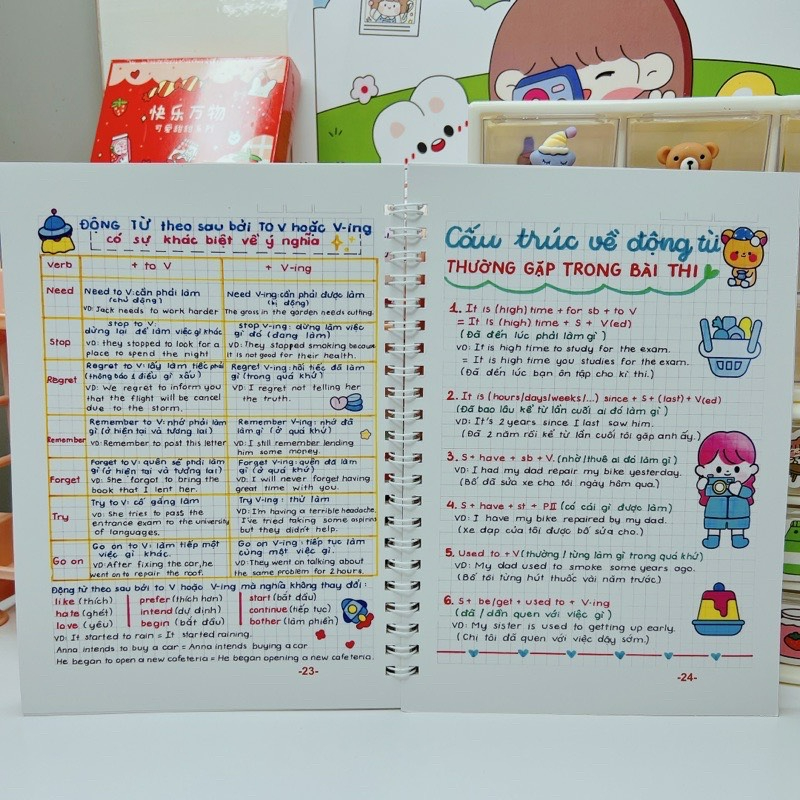 快乐万物
可爱甜甜系列
ĐỘNG TỪ theo sau bởi TO V hoặc V-ing
có sự khác biệt về ý nghĩa
Verb + to V + V-ing
Need
Need to V: cần phải làm
(chủ động)
VD: Jack needs to work harder
Need V-ing: cần phải được làm
(bị động)
The grass in the garden needs cutting.
Stop
stop to V:
dừng lại để làm việc gì khác
VD: they stopped to look for a
place to spend the night
stop V-ing: dừng làm việc
gì đó (đang làm)
VD: They stopped smoking because
it is not good for their health.
Regret
Regret to V: lấy làm tiếc phải
(thông báo 1 điều gì xấu)
VD: We regret to inform you
that the flight will be cancel
due to the storm.
Regret V-ing: hối tiếc đã làm
gì (trong quá khứ)
VD: I regret not telling her
the truth.
Remember
Remember to V: nhớ phải làm
gì (ở hiện tại và tương lai)
VD: Remember to post this letter
Remember V-ing: nhớ đã
làm gì (ở quá khứ)
VD: I still remember lending
him some money.
Forget
Forget to V: quên sẽ phải làm
gì (ở hiện tại và tương lai)
VD: She forgot to bring the
book that I lent her.
Forget V-ing: quên đã làm
gì (ở quá khứ)
VD: I will never forget having
great time with you.
Try
Try to V: cố gắng làm
VD: She tries to pass the
entrance exam to the university
of languages.
Try V-ing: thử làm
VD: I'm having a terrible headache.
I've tried taking some aspirins
but they didn't help.
Go on
Go on to V: làm tiếp một
việc gì khác.
VD: After fixing the car, he
went on to repair the roof.
Go on V-ing: tiếp tục làm
cùng một việc gì.
VD: They went on talking about
the same problem for 2 hours.
Động từ theo sau bởi to V hoặc V-ing mà nghĩa không thay đổi:
like (thích) prefer (thích hơn) start (bắt đầu)
hate (ghét) intend (dự định) continue (tiếp tục)
love (yêu) begin (bắt đầu) bother (làm phiền)
VD: It started to rain = It started raining.
Anna intends to buy a car = Anna intends buying a car
He began to open a new cafeteria = He began opening a new cafeteria.
-23-
Cấu trúc về động từ
THƯỜNG GẶP TRONG BÀI THI
1. It is (high) time + for sb + to V
= It is (high) time + S + V(ed)
(Đã đến lúc phải làm gì)
VD: It is high time to study for the exam.
= It is high time you studies for the exam.
(Đã đến lúc bạn ôn tập cho kì thi.)
2. It is (hours/days/weeks/...) since + S + (last) + V(ed)
(Đã bao lâu kể từ lần cuối ai đó làm gì)
VD: It's 2 years since I last saw him.
(Đã 2 năm rồi kể từ lần cuối tôi gặp anh ấy.)
3. S + have + sb + V. (nhờ/thuê ai đó làm gì)
VD: I had my dad repair my bike yesterday.
(Bố đã sửa xe cho tôi ngày hôm qua.)
4. S + have + st + PII (có cái gì được làm)
VD: I have my bike repaired by my dad.
(xe đạp của tôi được bố sửa cho.)
5. Used to + V (thường / từng làm gì trong quá khứ)
VD: My dad used to smoke some years ago.
(Bố tôi từng hút thuốc vài năm trước.)
6. S + be/get + used to + V-ing
(đã / dần quen với việc gì)
VD: My sister is used to getting up early.
(Chị tôi đã quen với việc dậy sớm.)
-24-